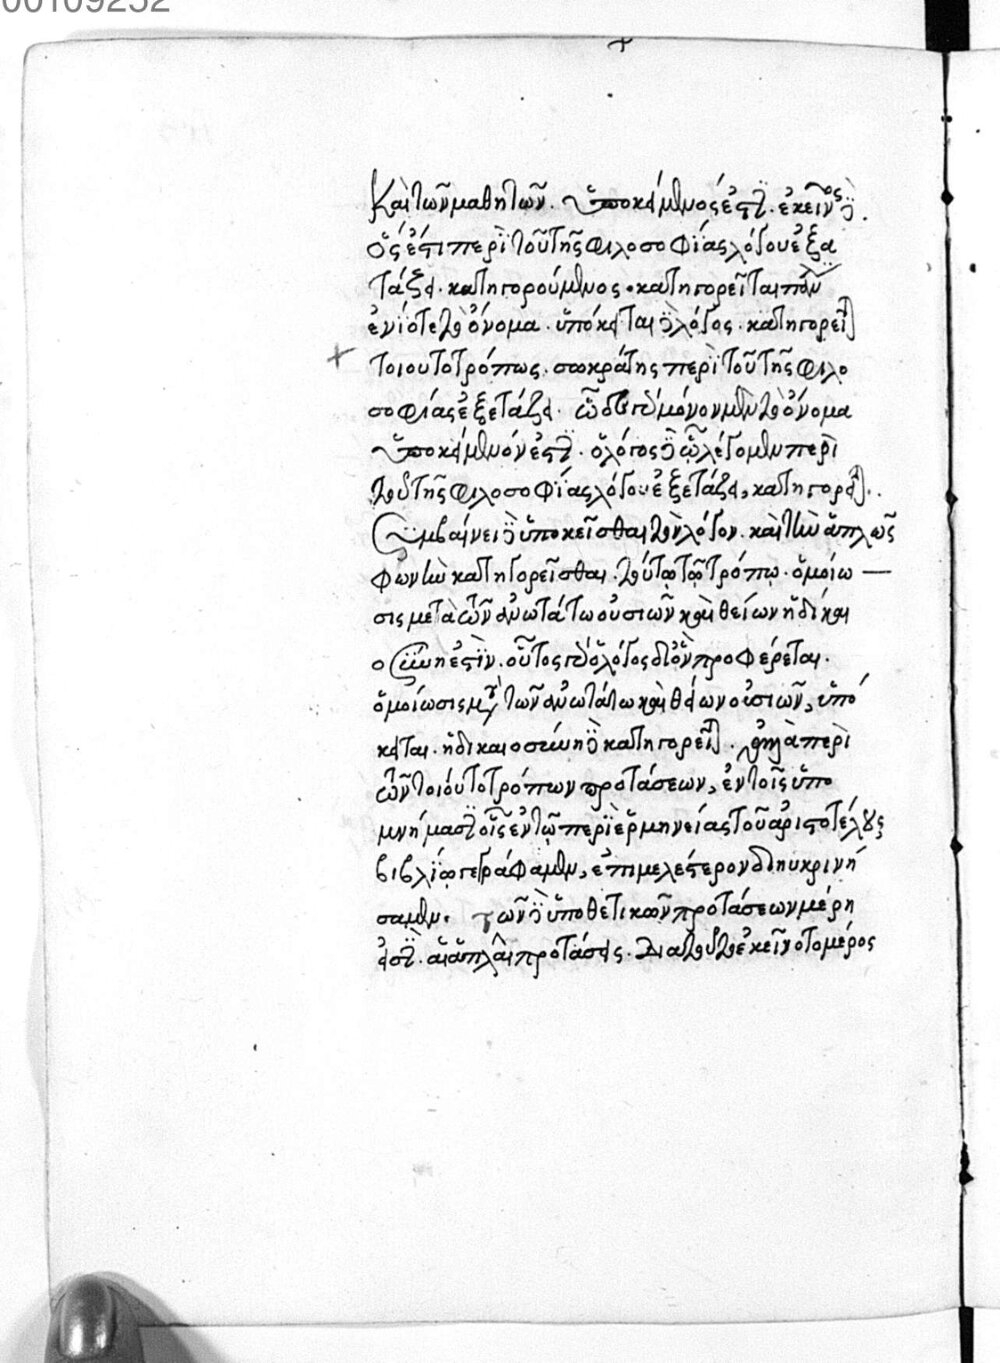 00109252
καὶ τῶν μαθητῶν. ὑποκείμενός ἐστι. ἐκεῖνος δὲ.
ὅς ἐστι περὶ τοῦ τῆς φιλοσοφίας λόγου ἐξε
τάζει. κατηγορούμενος. κατηγορεῖται
ἐνίοτε τὸ ὄνομα. ὑπόκειται δὲ λόγος. κατηγορεῖται
τοιουτοτρόπως. σωκράτης περὶ τοῦ τῆς φιλο
σοφίας ἐξετάζει. ὧδε μόνον μὲν τὸ ὄνομα
ὑποκείμενόν ἐστι. ὁ λόγος δὲ ᾧ λέγομεν περὶ
τοῦ τῆς φιλοσοφίας λόγου ἐξετάζει, κατηγορεῖται.
Συμβαίνει δὲ ὑποκεῖσθαι τὸν λόγον. καὶ τὴν ἁπλῶς
φωνὴν κατηγορεῖσθαι. τούτῳ τῷ τρόπῳ. ὁμοίω —
σις μετὰ τῶν ἀνωτάτω οὐσιῶν καὶ θείων ἡ δικαι
οσύνη ἐστὶν. οὗτος ὁ λόγος δι' ὃν προφέρεται.
ὁμοίωσις μετὰ τῶν ἀνωτάτω καὶ θείων οὐσιῶν, ὑπό
κειται. ἡ δικαιοσύνη δὲ κατηγορεῖται. ἀλλὰ περὶ
τῶν τοιουτοτρόπων προτάσεων, ἐν τοῖς ὑπο
μνήμασι τοῖς ἐν τῷ περὶ ἑρμηνείας τοῦ ἀριστοτέλους
βιβλίῳ γεγράφαμεν, ἐπιμελέστερον διηυκρινή
σαμεν. τῶν δὲ ὑποθετικῶν προτάσεων μέρη
εἰσὶ. αἱ ἁπλαῖ προτάσεις. Διὰ τοῦτο ἐκεῖνο τὸ μέρος